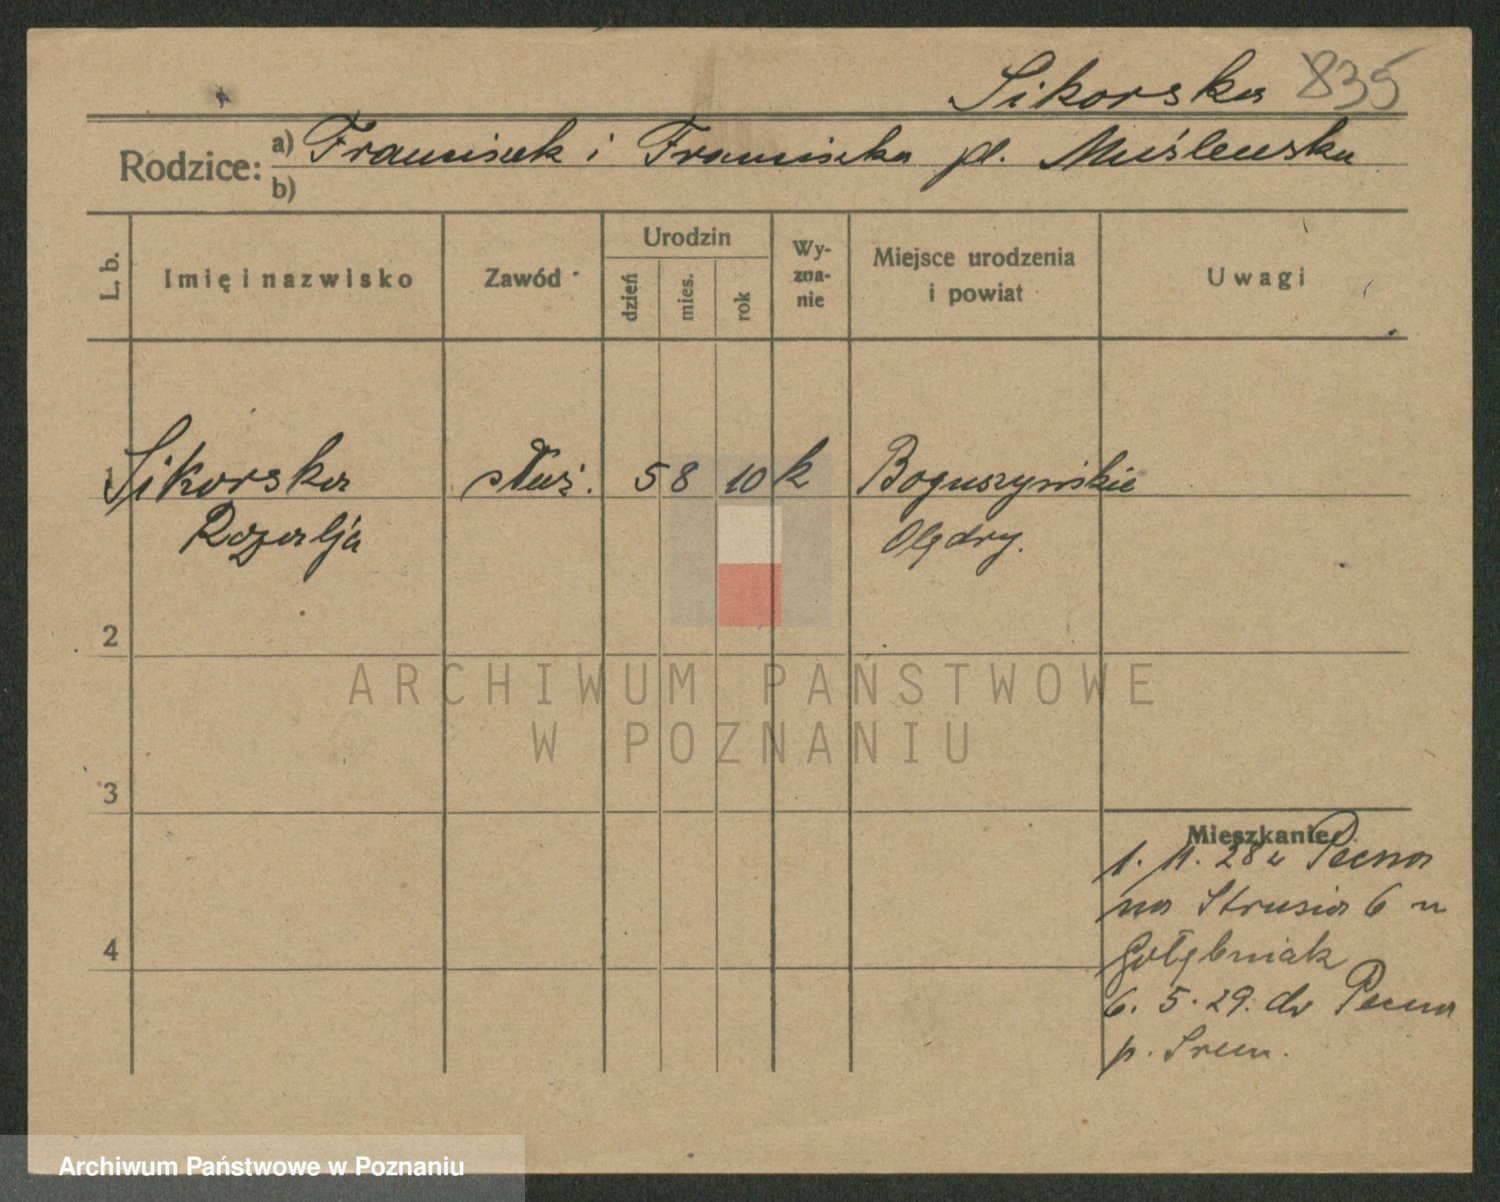 Sikorska 835
Rodzice: a) Franciszek i Franciszka pl. Muślewska
b)
L. b. Imię i nazwisko Zawód Urodzin dzień mies. rok Wy-zna-nie Miejsce urodzenia i powiat Uwagi
1 Sikorska służ. 5 8 10 k Boguszyńskie
Rozalja Olędry.
2
3
Mieszkanie:
1. 11. 28 z Pecna
na Strusia 6 u
Gołębniak
4
6. 5. 29. do Pecna
p. Śrem.
ARCHIWUM PAŃSTWOWE
W POZNANIU
Archiwum Państwowe w Poznaniu